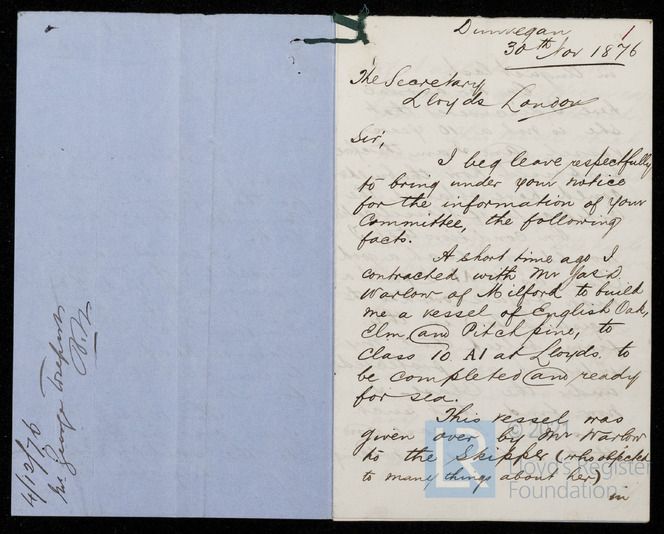 Dunvegan 1
30th Nov 1876
The Secretary
Lloyds London
Sir,
I beg leave respectfully
to bring under your notice
for the information of your
Committee, the following
facts.
A short time ago I
contracted with Mr Jas D.
Warlow of Milford to build
me a vessel of English Oak,
Elm, and Pitch pine, to
Class 10 A1 at Lloyds. to
be completed and ready
for sea.
This vessel was
given over by Mr Warlow
to the Skipper (who objected
to many things about her)
in
4/12/76
Mr George
© 2021
LR
Lloyd's Register
Foundation